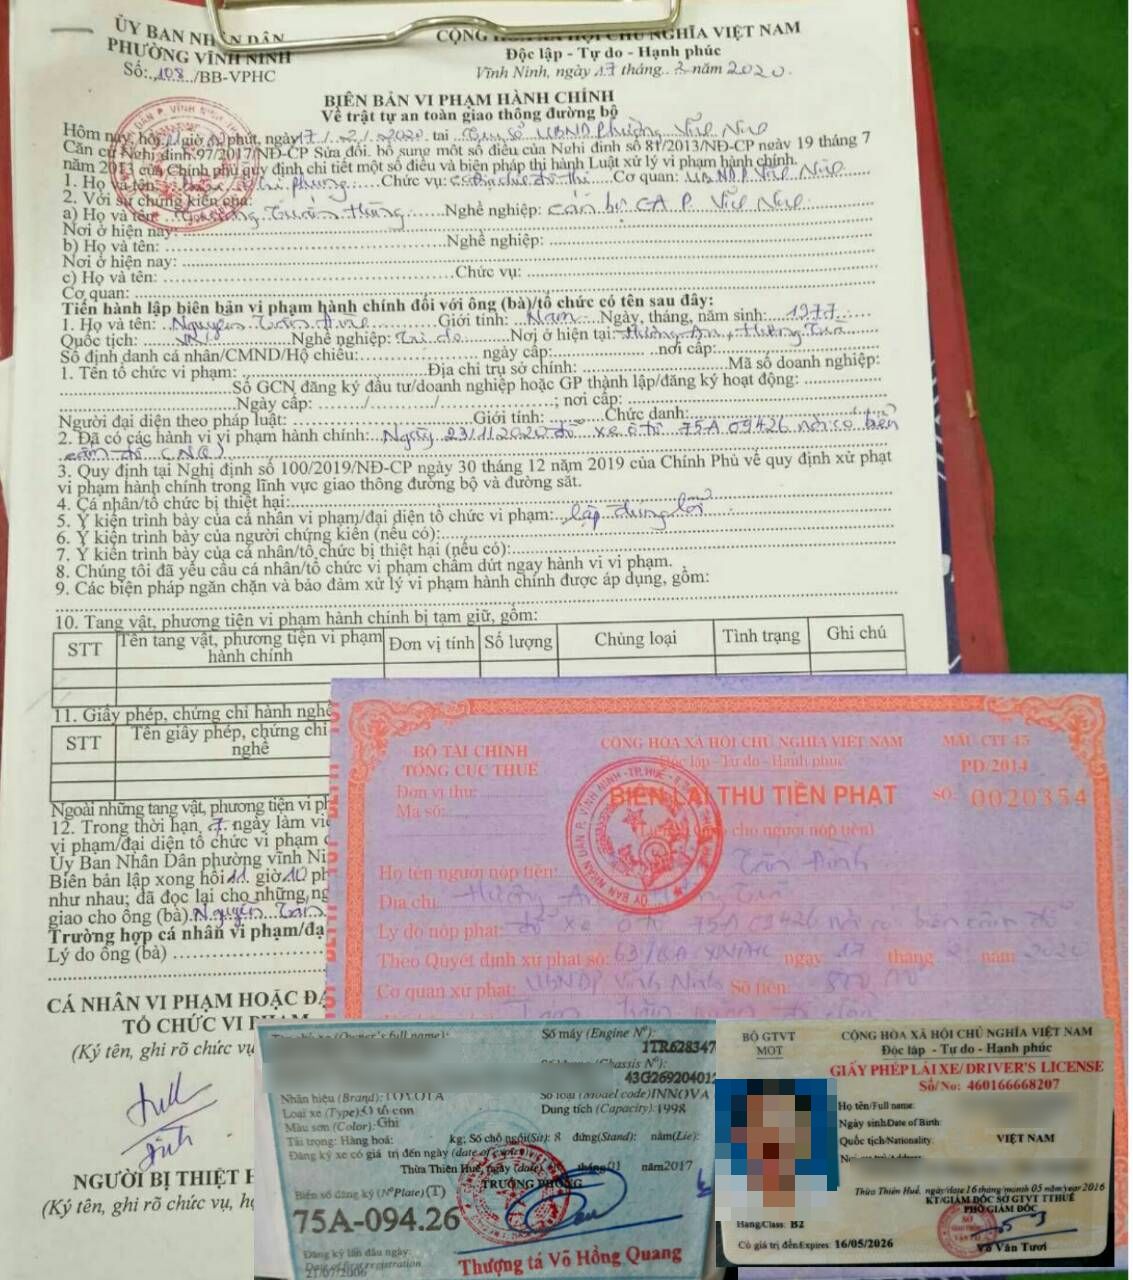 ỦY BAN NHÂN DÂN
PHƯỜNG VĨNH NINH
Số: 108 /BB-VPHC
CỘNG HÒA XÃ HỘI CHỦ NGHĨA VIỆT NAM
Độc lập - Tự do - Hạnh phúc
Vĩnh Ninh, ngày 17 tháng 2 năm 2020.
BIÊN BẢN VI PHẠM HÀNH CHÍNH
Về trật tự an toàn giao thông đường bộ
Hôm nay, hồi giờ phút, ngày 17/2/2020 tại Trụ sở UBND Phường Vĩnh Ninh
Căn cứ Nghị định 97/2017/NĐ-CP Sửa đổi, bổ sung một số điều của Nghị định số 81/2013/NĐ-CP ngày 19 tháng 7
năm 2013 của Chính phủ quy định chi tiết một số điều và biện pháp thi hành Luật xử lý vi phạm hành chính.
1. Họ và tên: Phụng Chức vụ: Cơ quan: UBNDP Vĩnh Ninh
2. Với sự chứng kiến của:
a) Họ và tên: Tuấn Hùng Nghề nghiệp: Cán bộ CA P. Vĩnh Ninh
Nơi ở hiện nay:
b) Họ và tên: Nghề nghiệp:
Nơi ở hiện nay:
c) Họ và tên: Chức vụ:
Cơ quan:
Tiến hành lập biên bản vi phạm hành chính đối với ông (bà)/tổ chức có tên sau đây:
1. Họ và tên: Nguyễn Trần Giới tính: Nam Ngày, tháng, năm sinh: 1977
Quốc tịch: VN Nghề nghiệp: Tự do Nơi ở hiện tại: Hương An, Hương Trà
Số định danh cá nhân/CMND/Hộ chiếu: ngày cấp: nơi cấp:
1. Tên tổ chức vi phạm: Địa chỉ trụ sở chính: Mã số doanh nghiệp:
Số GCN đăng ký đầu tư/doanh nghiệp hoặc GP thành lập/đăng ký hoạt động:
Ngày cấp: / / ; nơi cấp:
Người đại diện theo pháp luật: Giới tính: Chức danh:
2. Đã có các hành vi vi phạm hành chính: Ngày 23/1/2020 đỗ xe ô tô 75A 09426 nơi có biển
cấm đỗ
3. Quy định tại Nghị định số 100/2019/NĐ-CP ngày 30 tháng 12 năm 2019 của Chính Phủ về quy định xử phạt
vi phạm hành chính trong lĩnh vực giao thông đường bộ và đường sắt.
4. Cá nhân/tổ chức bị thiệt hại:
5. Ý kiến trình bày của cá nhân vi phạm/đại diện tổ chức vi phạm: lập đúng lỗi
6. Ý kiến trình bày của người chứng kiến (nếu có):
7. Ý kiến trình bày của cá nhân/tổ chức bị thiệt hại (nếu có):
8. Chúng tôi đã yêu cầu cá nhân/tổ chức vi phạm chấm dứt ngay hành vi vi phạm.
9. Các biện pháp ngăn chặn và bảo đảm xử lý vi phạm hành chính được áp dụng, gồm:
10. Tang vật, phương tiện vi phạm hành chính bị tạm giữ, gồm:
STT Tên tang vật, phương tiện vi phạm hành chính Đơn vị tính Số lượng Chủng loại Tình trạng Ghi chú
11. Giấy phép, chứng chỉ hành nghề
STT Tên giấy phép, chứng chỉ
nghề
Ngoài những tang vật, phương tiện vi ph
12. Trong thời hạn 7 ngày làm vi
vi phạm/đại diện tổ chức vi phạm
Ủy Ban Nhân Dân phường vĩnh Ni
Biên bản lập xong hồi 11 giờ 10 ph
như nhau; đã đọc lại cho những ng
giao cho ông (bà) Nguyễn Trần
Trường hợp cá nhân vi phạm/đạ
Lý do ông (bà)
CÁ NHÂN VI PHẠM HOẶC ĐẠ
TỔ CHỨC VI PHẠM
(Ký tên, ghi rõ chức vụ
NGƯỜI BỊ THIỆT H
(Ký tên, ghi rõ chức vụ, họ
BỘ TÀI CHÍNH
TỔNG CỤC THUẾ
Đơn vị thu:
Mã số:
CỘNG HÒA XÃ HỘI CHỦ NGHĨA VIỆT NAM
Độc lập - Tự do - Hạnh phúc
MẪU CTT 45
PD/2014
BIÊN LAI THU TIỀN PHẠT
SỐ: 0020354
cho người nộp tiền)
Họ tên người nộp tiền: Trần
Địa chỉ: Hương An
Lý do nộp phạt: đỗ xe ô tô 75A 09426 nơi có biển cấm đỗ
Theo Quyết định xử phạt số: 63/QĐ-XPHC ngày 17 tháng 2 năm 2020
Cơ quan xử phạt: UBNDP Vĩnh Ninh Số tiền:
(Owner's full name):
Số máy (Engine N°):
1TR628347
(Chassis N°):
43G26920401
Nhãn hiệu (Brand): TOYOTA
Số loại (Model code) INNOVA
Loại xe (Type): Ô tô con
Dung tích (Capacity): 1998
Màu sơn (Color): Ghi
Tải trọng: Hàng hoá: kg; Số chỗ ngồi(Sit): 8 đứng(Stand): nằm(Lie):
Đăng ký xe có giá trị đến ngày (date of expiry)
Thừa Thiên Huế, ngày (date) tháng 01 năm 2017
TRƯỞNG PHÒNG
Biển số đăng ký (N°Plate) (T)
75A-094.26
Đăng ký lần đầu ngày:
Date of first registration
21/07/2006
Thượng tá Võ Hồng Quang
BỘ GTVT
MOT
CỘNG HÒA XÃ HỘI CHỦ NGHĨA VIỆT NAM
Độc lập - Tự do - Hạnh phúc
GIẤY PHÉP LÁI XE/DRIVER'S LICENSE
Số/No: 460166668207
Họ tên/Full name:
Ngày sinh/Date of Birth:
Quốc tịch/Nationality: VIỆT NAM
Thừa Thiên Huế, ngày/date 16 tháng/month 05 năm/year 2016
KT/GIÁM ĐỐC SỞ GTVT TTHUẾ
PHÓ GIÁM ĐỐC
Hạng/Class: B2
Có giá trị đến/Expires: 16/05/2026
Võ Văn Tươi